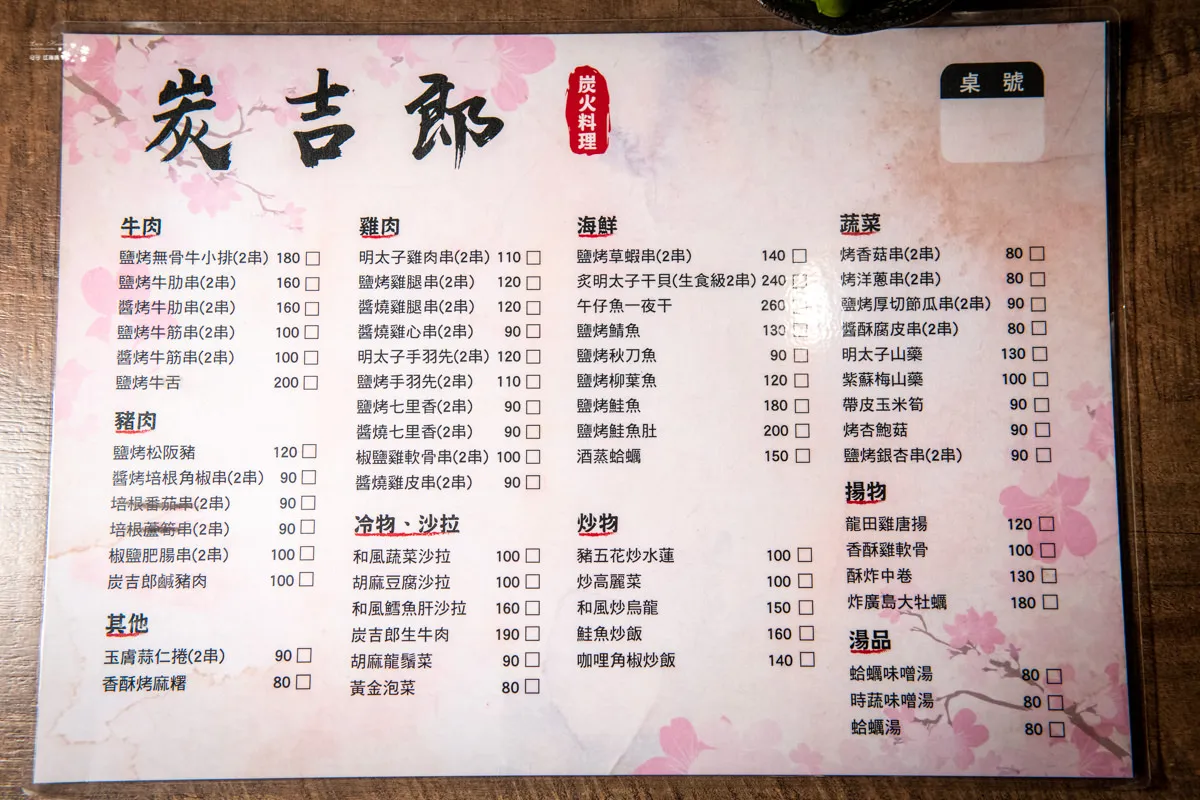 炭吉郎
炭火料理
桌號
牛肉
鹽烤無骨牛小排(2串) 180
鹽烤牛肋串(2串) 160
醬烤牛肋串(2串) 160
鹽烤牛筋串(2串) 100
醬烤牛筋串(2串) 100
鹽烤牛舌 200
豬肉
鹽烤松阪豬 120
醬烤培根角椒串(2串) 90
培根番茄串(2串) 90
培根蘆筍串(2串) 90
椒鹽肥腸串(2串) 100
炭吉郎鹹豬肉 100
其他
玉膚蒜仁捲(2串) 90
香酥烤麻糬 80
雞肉
明太子雞肉串(2串) 110
鹽烤雞腿串(2串) 120
醬燒雞腿串(2串) 120
醬燒雞心串(2串) 90
明太子手羽先(2串) 120
鹽烤手羽先(2串) 110
鹽烤七里香(2串) 90
醬燒七里香(2串) 90
椒鹽雞軟骨串(2串) 100
醬燒雞皮串(2串) 90
冷物、沙拉
和風蔬菜沙拉 100
胡麻豆腐沙拉 100
和風鱈魚肝沙拉 160
炭吉郎生牛肉 190
胡麻龍鬚菜 90
黃金泡菜 80
海鮮
鹽烤草蝦串(2串) 140
炙明太子干貝(生食級2串) 240
午仔魚一夜干 260
鹽烤鯖魚 130
鹽烤秋刀魚 90
鹽烤柳葉魚 120
鹽烤鮭魚 180
鹽烤鮭魚肚 200
酒蒸蛤蠣 150
炒物
豬五花炒水蓮 100
炒高麗菜 100
和風炒烏龍 150
鮭魚炒飯 160
咖哩角椒炒飯 140
蔬菜
烤香菇串(2串) 80
烤洋蔥串(2串) 80
鹽烤厚切節瓜串(2串) 90
醬酥腐皮串(2串) 80
明太子山藥 130
紫蘇梅山藥 100
帶皮玉米筍 90
烤杏鮑菇 90
鹽烤銀杏串(2串) 90
揚物
龍田雞唐揚 120
香酥雞軟骨 100
酥炸中卷 130
炸廣島大牡蠣 180
湯品
蛤蠣味噌湯 80
時蔬味噌湯 80
蛤蠣湯 80